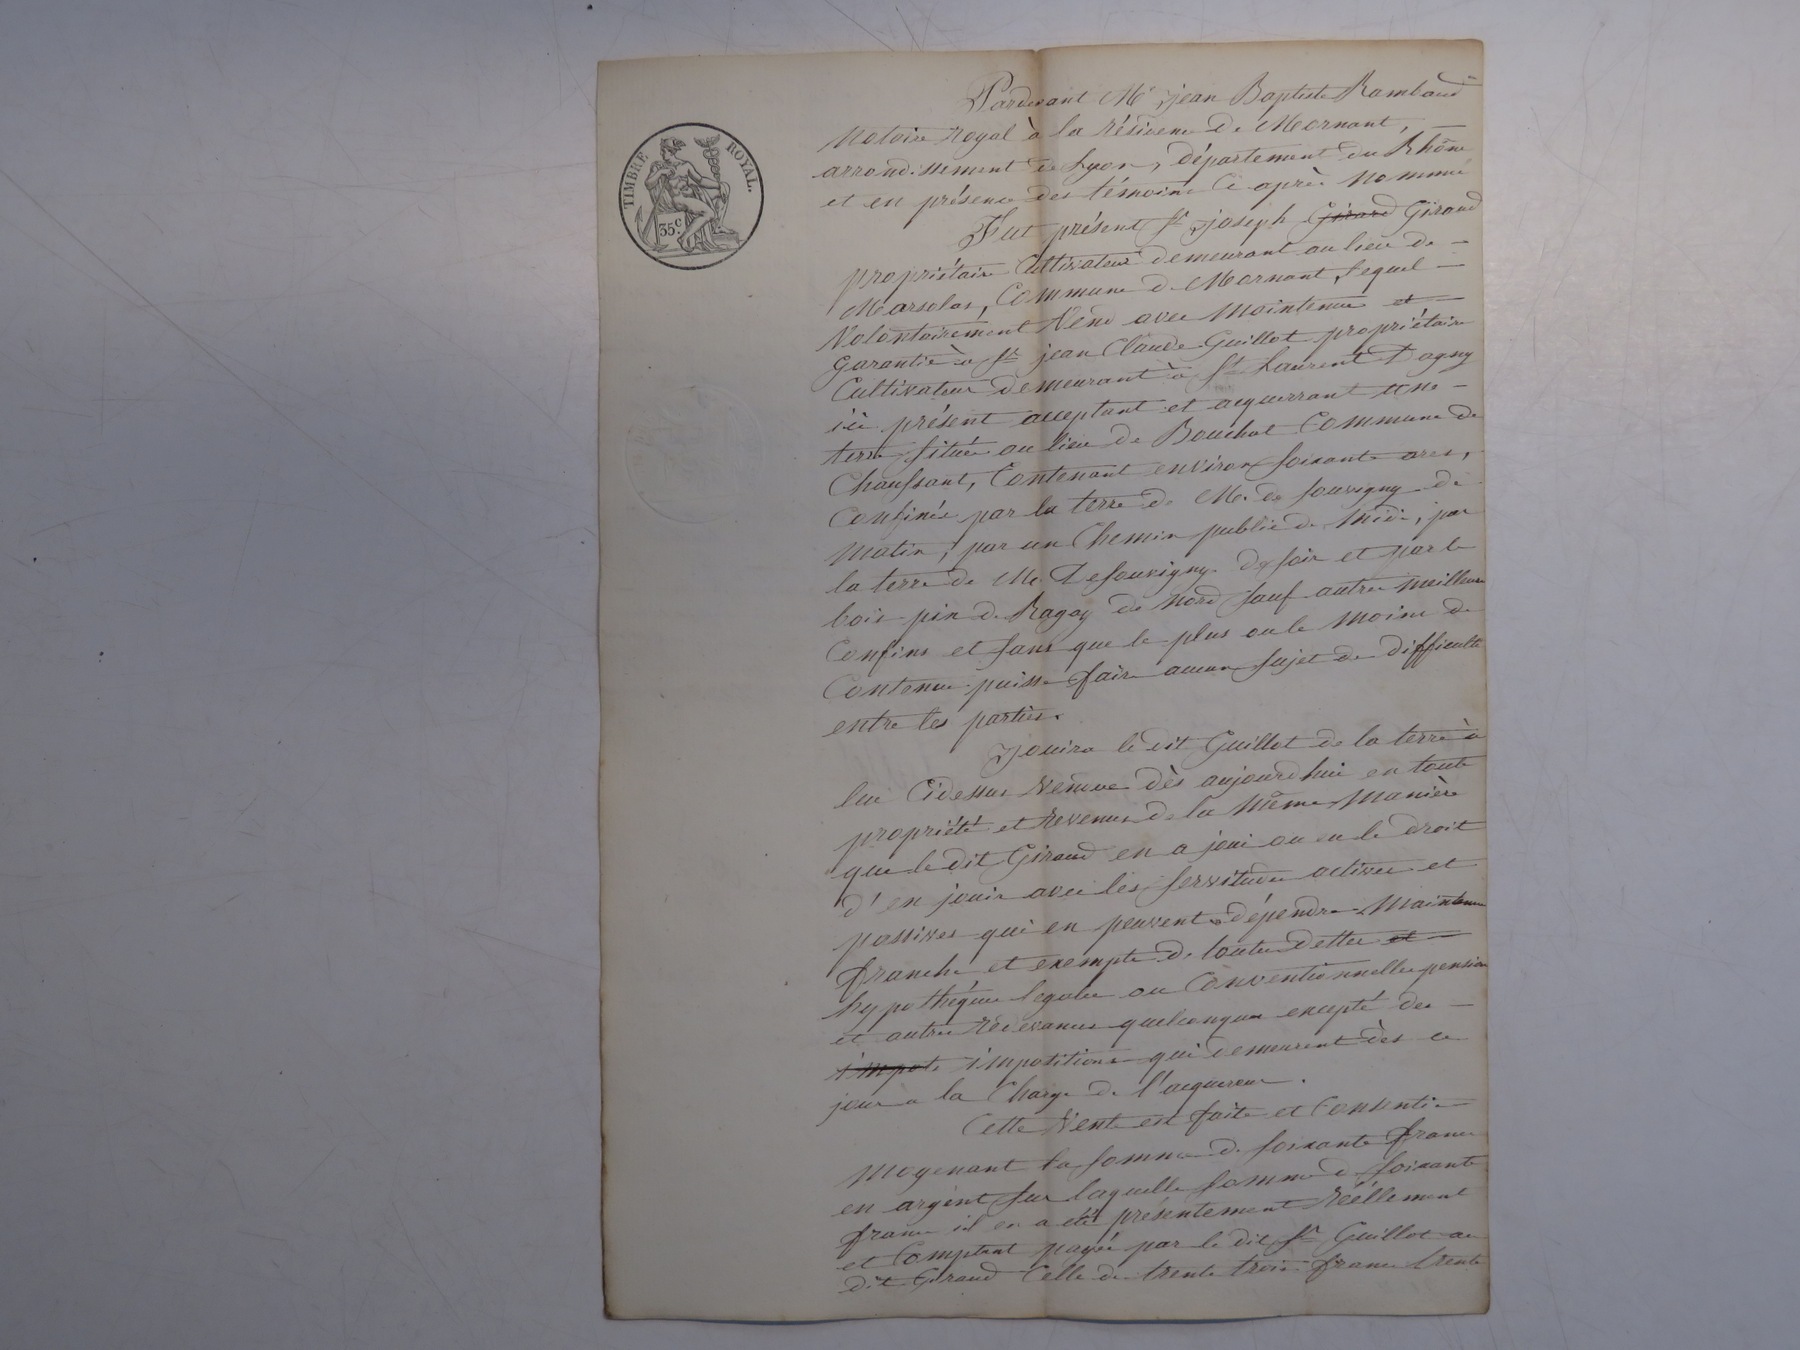 TIMBRE ROYAL.
35c.
Pardevant Me jean Baptiste Rambaud
Notaire Royal à la résidence de Mornant,
arrondissement de Lyon, département du Rhône
et en présence des témoins ci après Nommés
Fut présent Sr joseph Girard Giraud
propriétaire Cultivateur demeurant au lieu de
Marsolas, Commune de Mornant, lequel
Volontairement Vend avec Maintenue et
garantie à Sr jean Claude Guillot propriétaire
Cultivateur demeurant à St Laurent Dagny
ici présent acceptant et acquerrant une
terre située au lieu de Bouchat Commune de
Chaussant, Contenant environ soixante ares,
Confinée par la terre de M. de souvigny de
Matin, par un Chemin public de Midi, par
la terre de M. Desouvigny de soir et par le
bois pin de Ragey de Nord sauf autres meilleurs
Confins et sans que le plus ou le Moins de
Contenue puisse faire aucun sujet de difficulté
entre les parties.
Jouira le dit Guillot de la terre à
lui Cidessus Vendue dès aujourdhui en toute
propriété et revenus de la Même Manière
que le dit Giraud en a joui ou eu le droit
d'en jouir avec les servitudes actives et
passives qui en peuvent dépendre Maintenue
franche et exempte de toutes dettes et
hypothéques légales ou Conventionnelles pension
et autres rédevances quelconques excepté des
impots impositions qui demeurent dès ce
jour a la Charge de l'acquereur.
Cette Vente est faite et Consentie
Moyenant la somme de soixante francs
en argent sur laquelle somme de soixante
francs il en a été présentement réellement
et Comptant payée par le dit Sr Guillot au
dit Giraud Celle de trente trois francs trente